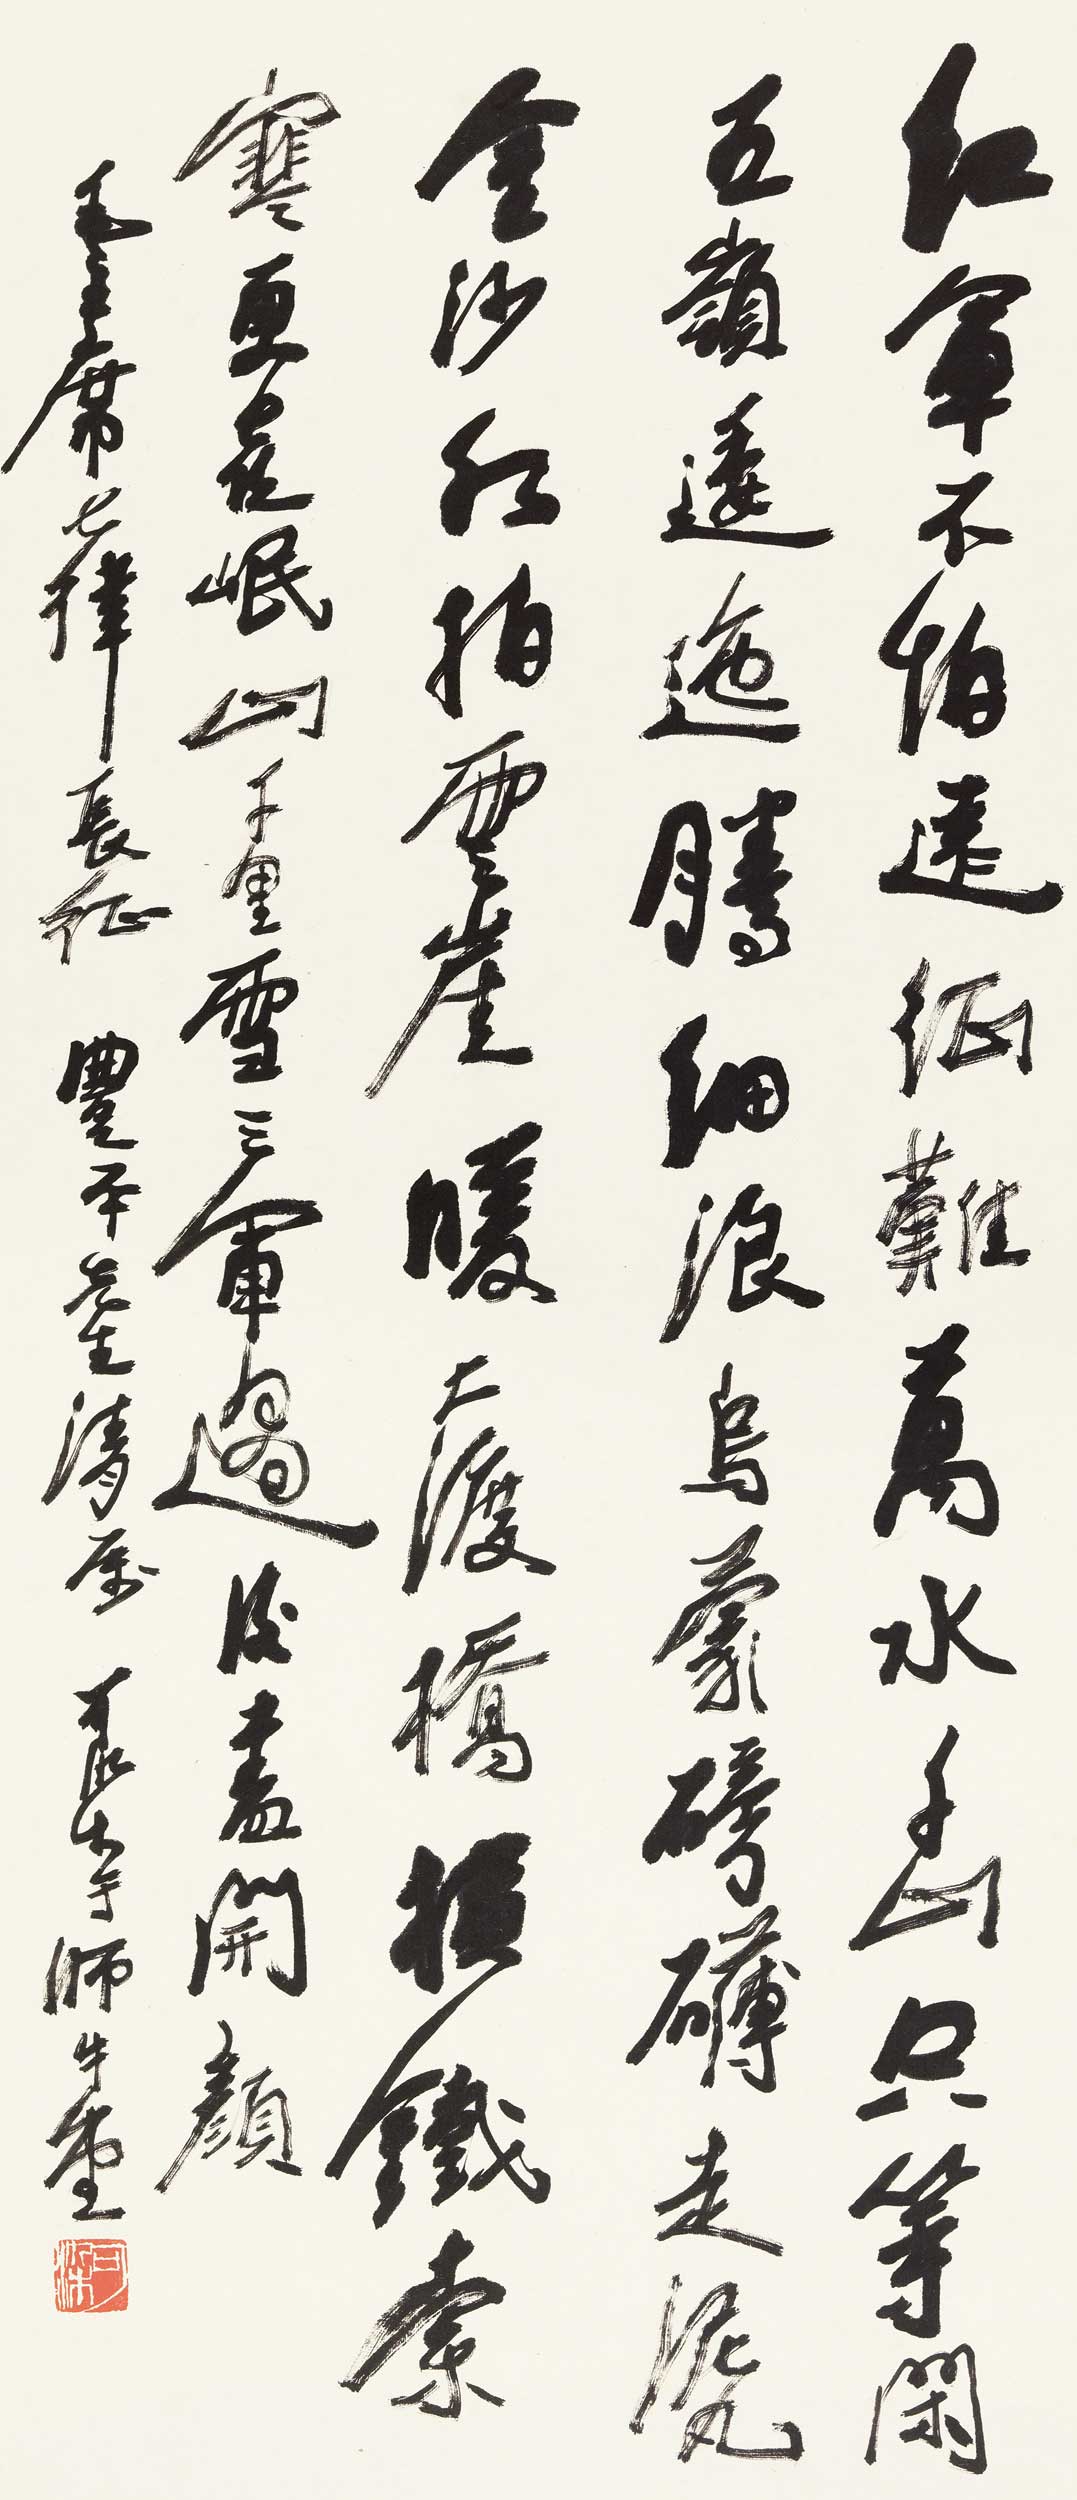 紅軍不怕遠征難萬水千山只等閑
五嶺逶迤騰細浪烏蒙磅礴走泥丸
金沙水拍雲崖暖大渡橋橫鐵索
寒更喜岷山千里雪三軍過後盡開顏
毛主席七律長征 豐平先生清屬 可染書于師牛堂
可染